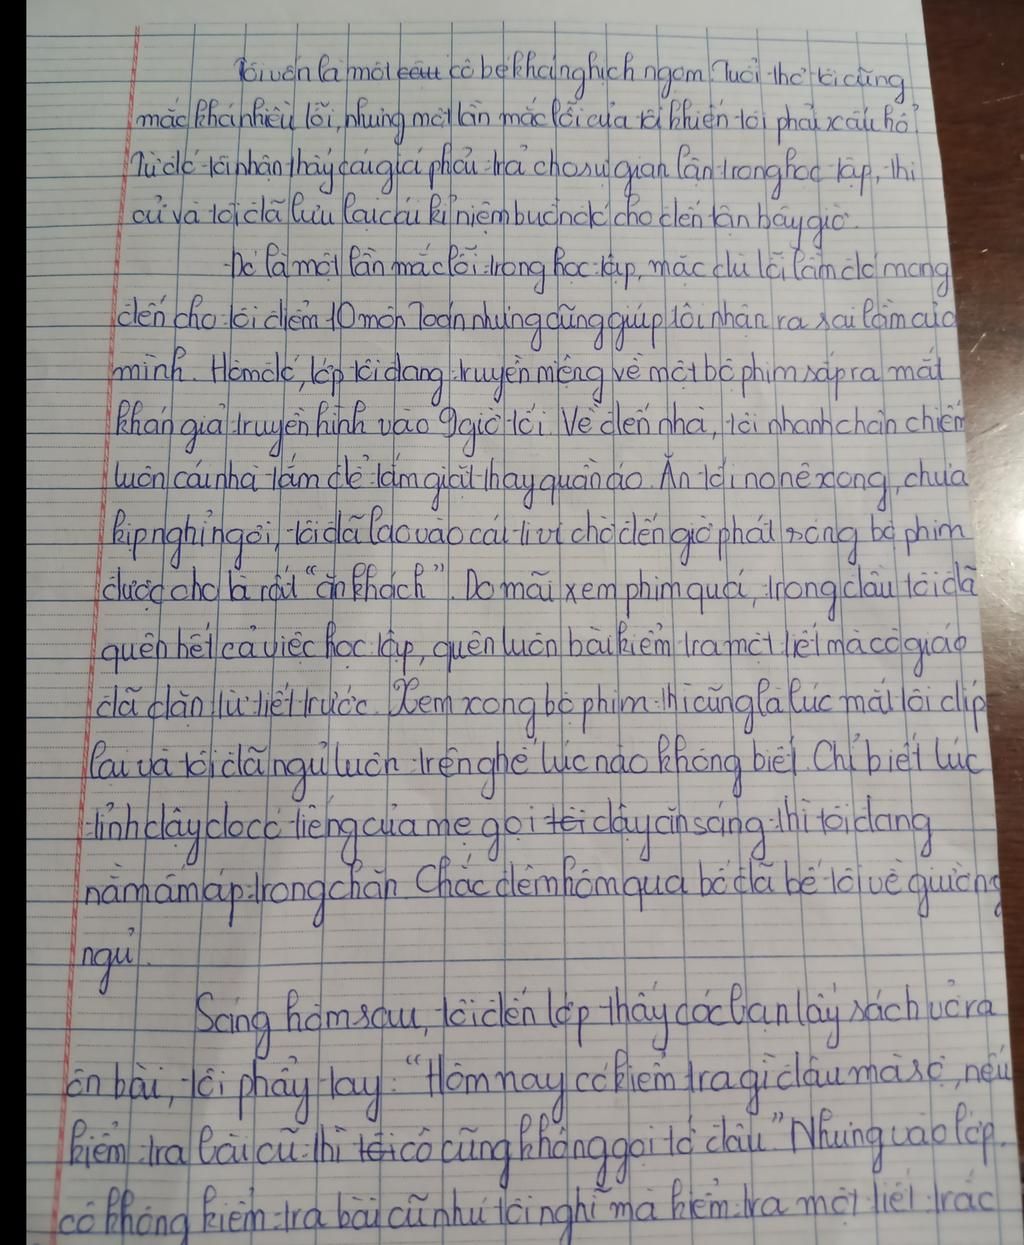 Tôi vốn là một cô bé khá nghịch ngợm. Tuổi thơ tôi cũng
mắc khá nhiều lỗi, nhưng một lần mắc lỗi của tôi khiến tôi phải xấu hổ.
Từ đó tôi nhận thấy cái giá phải trả cho sự gian lận trong học tập, thi
cử và tôi đã lưu lại cái kỉ niệm buồn đó cho đến tận bây giờ.
Đó là một lần mắc lỗi trong học tập, mặc dù lỗi lầm đó mang
đến cho tôi điểm 10 môn Toán nhưng cũng giúp tôi nhận ra sai lầm của
mình. Hôm đó, lớp tôi đang truyền miệng về một bộ phim sắp ra mắt
khán giả truyền hình vào 9 giờ tối. Về đến nhà, tôi nhanh chân chiếm
luôn cái nhà tắm để tắm giặt thay quần áo. Ăn tối no nê xong, chưa
kịp nghỉ ngơi, tôi đã lao vào cái ti vi chờ đến giờ phát sóng bộ phim
được cho là rất "ăn khách". Do mãi xem phim quá, trong đầu tôi đã
quên hết cả việc học tập, quên luôn bài kiểm tra một tiết mà cô giáo
đã dặn từ tiết trước. Xem xong bộ phim thì cũng là lúc mắt tôi díp
lại và tôi đã ngủ luôn trên ghế lúc nào không biết. Chỉ biết lúc
tỉnh dậy do có tiếng của mẹ gọi dậy ăn sáng thì tôi đang
nằm ấm áp trong chăn. Chắc đêm hôm qua bố đã bế tôi về giường
ngủ.
Sáng hôm sau, tôi đến lớp thấy các bạn lấy sách vở ra
ôn bài, tôi phẩy tay: "Hôm nay có kiểm tra gì đâu mà sợ, nếu
kiểm tra bài cũ thì cô cũng không gọi tớ đâu". Nhưng vào lớp,
cô không kiểm tra bài cũ như tôi nghĩ mà kiểm tra một tiết trắc